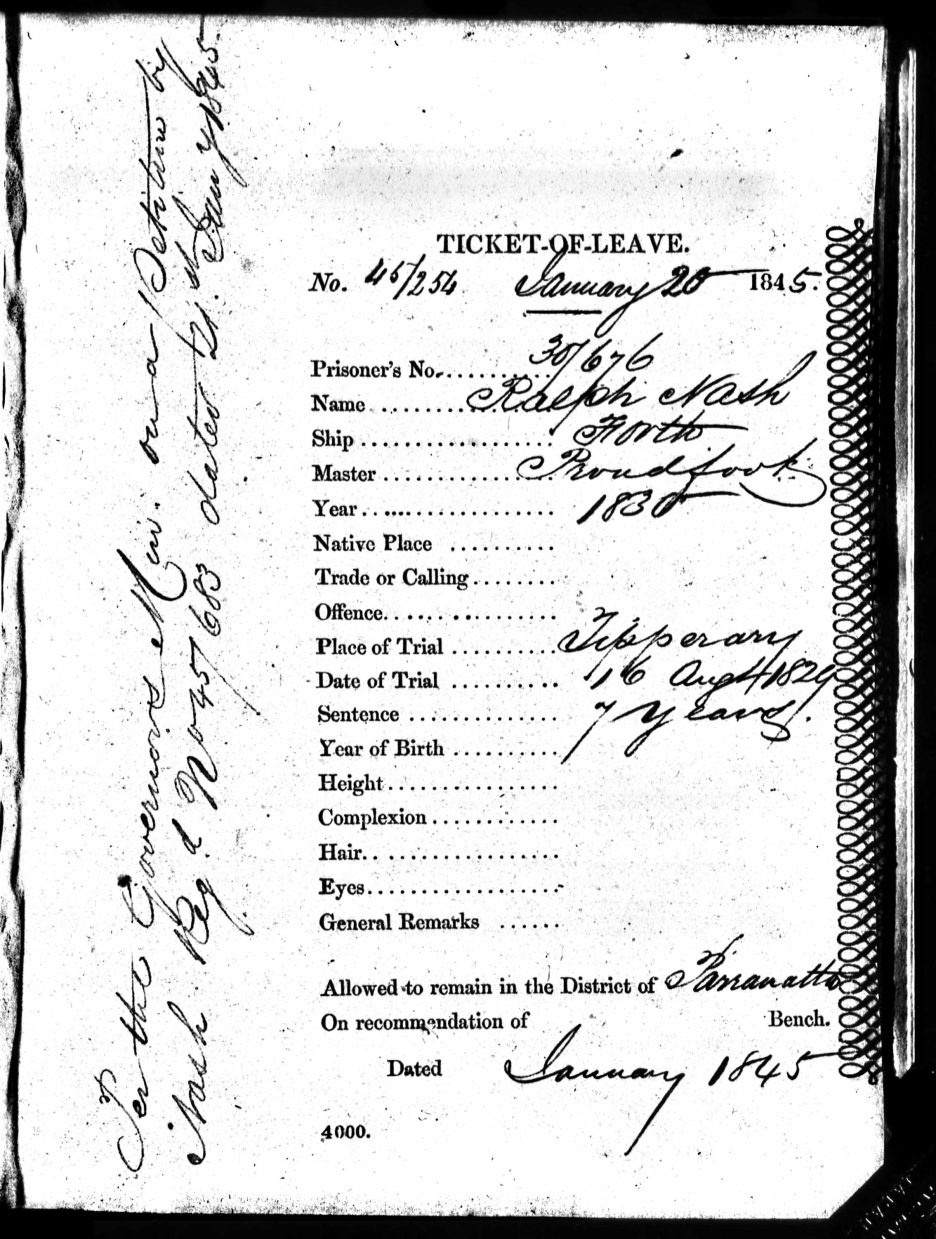 TICKET-OF-LEAVE.
No. 45/254 January 20 1845.
Prisoner's No. 30/676
Name Ralph Nash
Ship Forth
Master Proudfoot
Year 1830
Native Place
Trade or Calling
Offence
Place of Trial Tipperary
Date of Trial 16 Augt 1829
Sentence 7 Years.
Year of Birth
Height
Complexion
Hair
Eyes
General Remarks
Allowed to remain in the District of Parramatta
On recommendation of Bench.
Dated January 1845
4000.
Per the Governors Min. on a Petition by
Nash Reg.d No 45/683 dated 21st Jany 1845